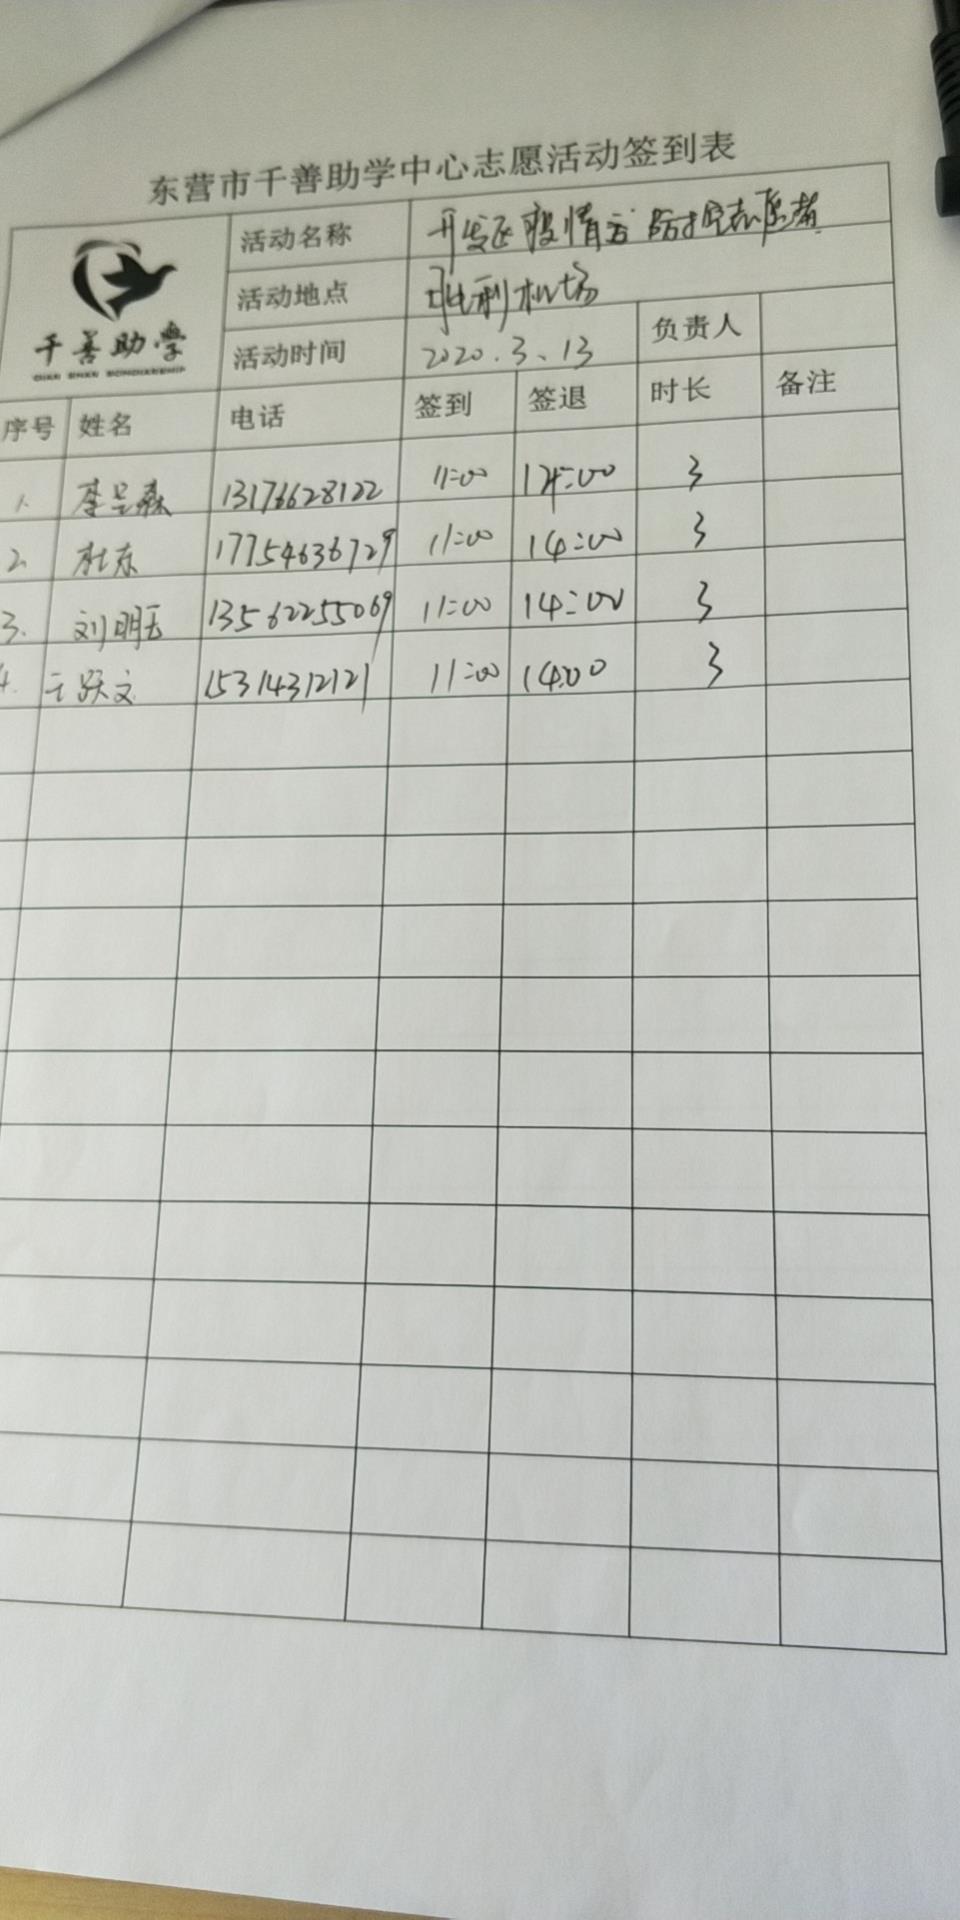 东营市千善助学中心志愿活动签到表
千善助学
活动名称 开发区疫情 防控志愿者
活动地点 胜利机场
活动时间 2020.3.13 负责人
序号 姓名 电话 签到 签退 时长 备注
1. 李 森 13176628122 11:00 14:00 3
2. 杜东 17754636729 11:00 14:00 3
3. 刘明玉 13562255069 11:00 14:00 3
4. 于跃文 15314312121 11:00 14:00 3